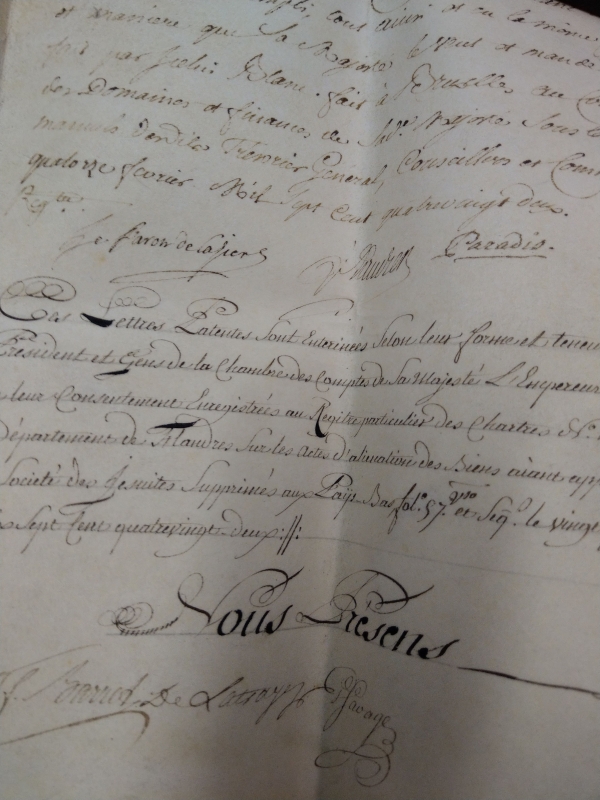 tout ainsi et en la même
et maniere que Sa Majesté le veut et mande
par fait à Bruxelles au
des Domaines et finances de Sa Majesté sous
manuels desdits Trésorier Général, Conseillers et Com
quatorze fevrier Mil sept cent quatrevingt deux.
Le Baron de Paradis.
Ces Lettres Patentes sont Enterinées selon leur forme et teneur
Président et Gens de la Chambre des Comptes de Sa Majesté L'Empereur
leur Consentement Enregistrées au Registre particulier des Chartres &c.
Département de Flandres sur les actes d'alienation des Biens aiant app
Societé des Jesuites Supprimés aux Païs Bas fol. 57 et seq. le vingt
Sept Cent quatrevingt deux
Nous Présens
De